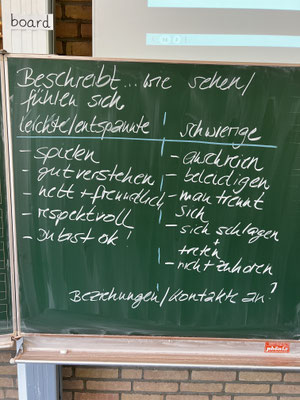 board
Beschreibt... wie sehen/
fühlen sich
leichte/entspannte
schwierige
- spielen
- gut verstehen
- nett + freundlich
- respektvoll
- Du bist ok!
- anschreien
- beleidigen
- man trennt
sich
- sich schlagen
+
treten
- nicht zuhören
Beziehungen/Kontakte an?